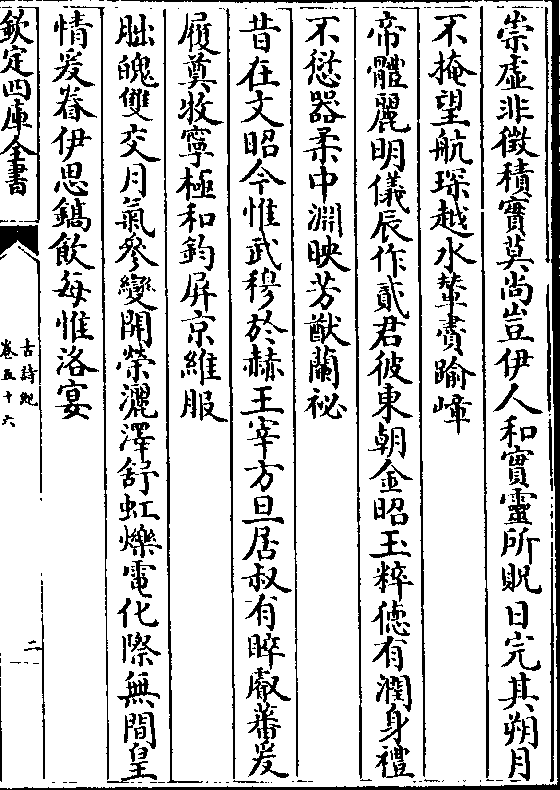 崇虛非徵積實莫尚豈伊人和實靈所貺日完其朔月
不掩望航琛越水輦賮踰嶂
帝體麗明儀辰作貳君彼東朝金昭玉粹德有潤身禮
不愆器柔中淵映芳猷蘭祕
昔在文昭今惟武穆於赫王宰方旦居叔有睟叡蕃爰
履奠牧寧極和鈞屏京維服
朏魄雙交月氣參變開榮灑澤舒虹爍電化際無間皇
情爰眷伊思鎬飲每惟洛宴
欽定四庫全書
古詩紀
卷五十六
二